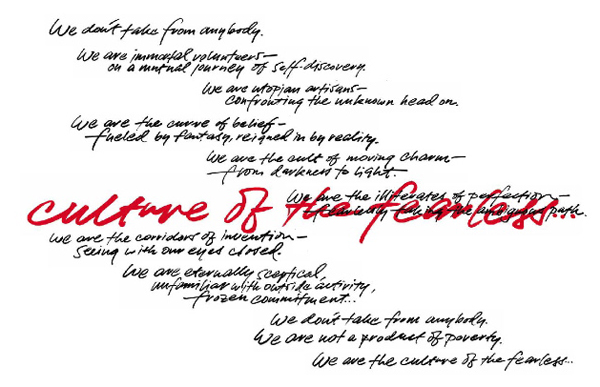 We don't take from anybody.
We are immortal volunteers—
on a mutual journey of self-discovery.
We are utopian artisans—
confronting the unknown head on.
We are the curve of belief—
fueled by fantasy, reigned in by reality.
We are the cult of moving charm—
from darkness to light.
We are the illiterates of perfection—
fearlessly taking the path.
culture of the fearless...
We are the corridors of invention—
seeing with our eyes closed.
We are eternally sceptical,
unfamiliar with outside activity,
frozen commitment...
We don't take from anybody.
We are not a product of poverty.
We are the culture of the fearless...